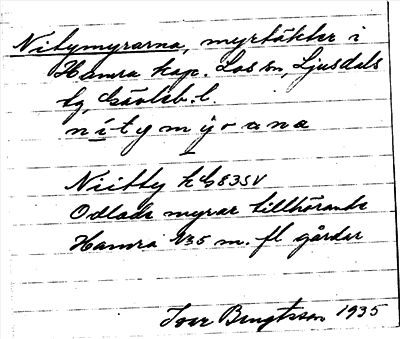 Nitymyrarna, myrtäkter i
Hamra kap. Los sn, Ljusdals
tg, Gävleb. l.
nitymyrana
Niitty k G83SV
Odlade myrar tillhörande
Hamra 1/35 m. fl gårdar
Iver Bengtsson 1935